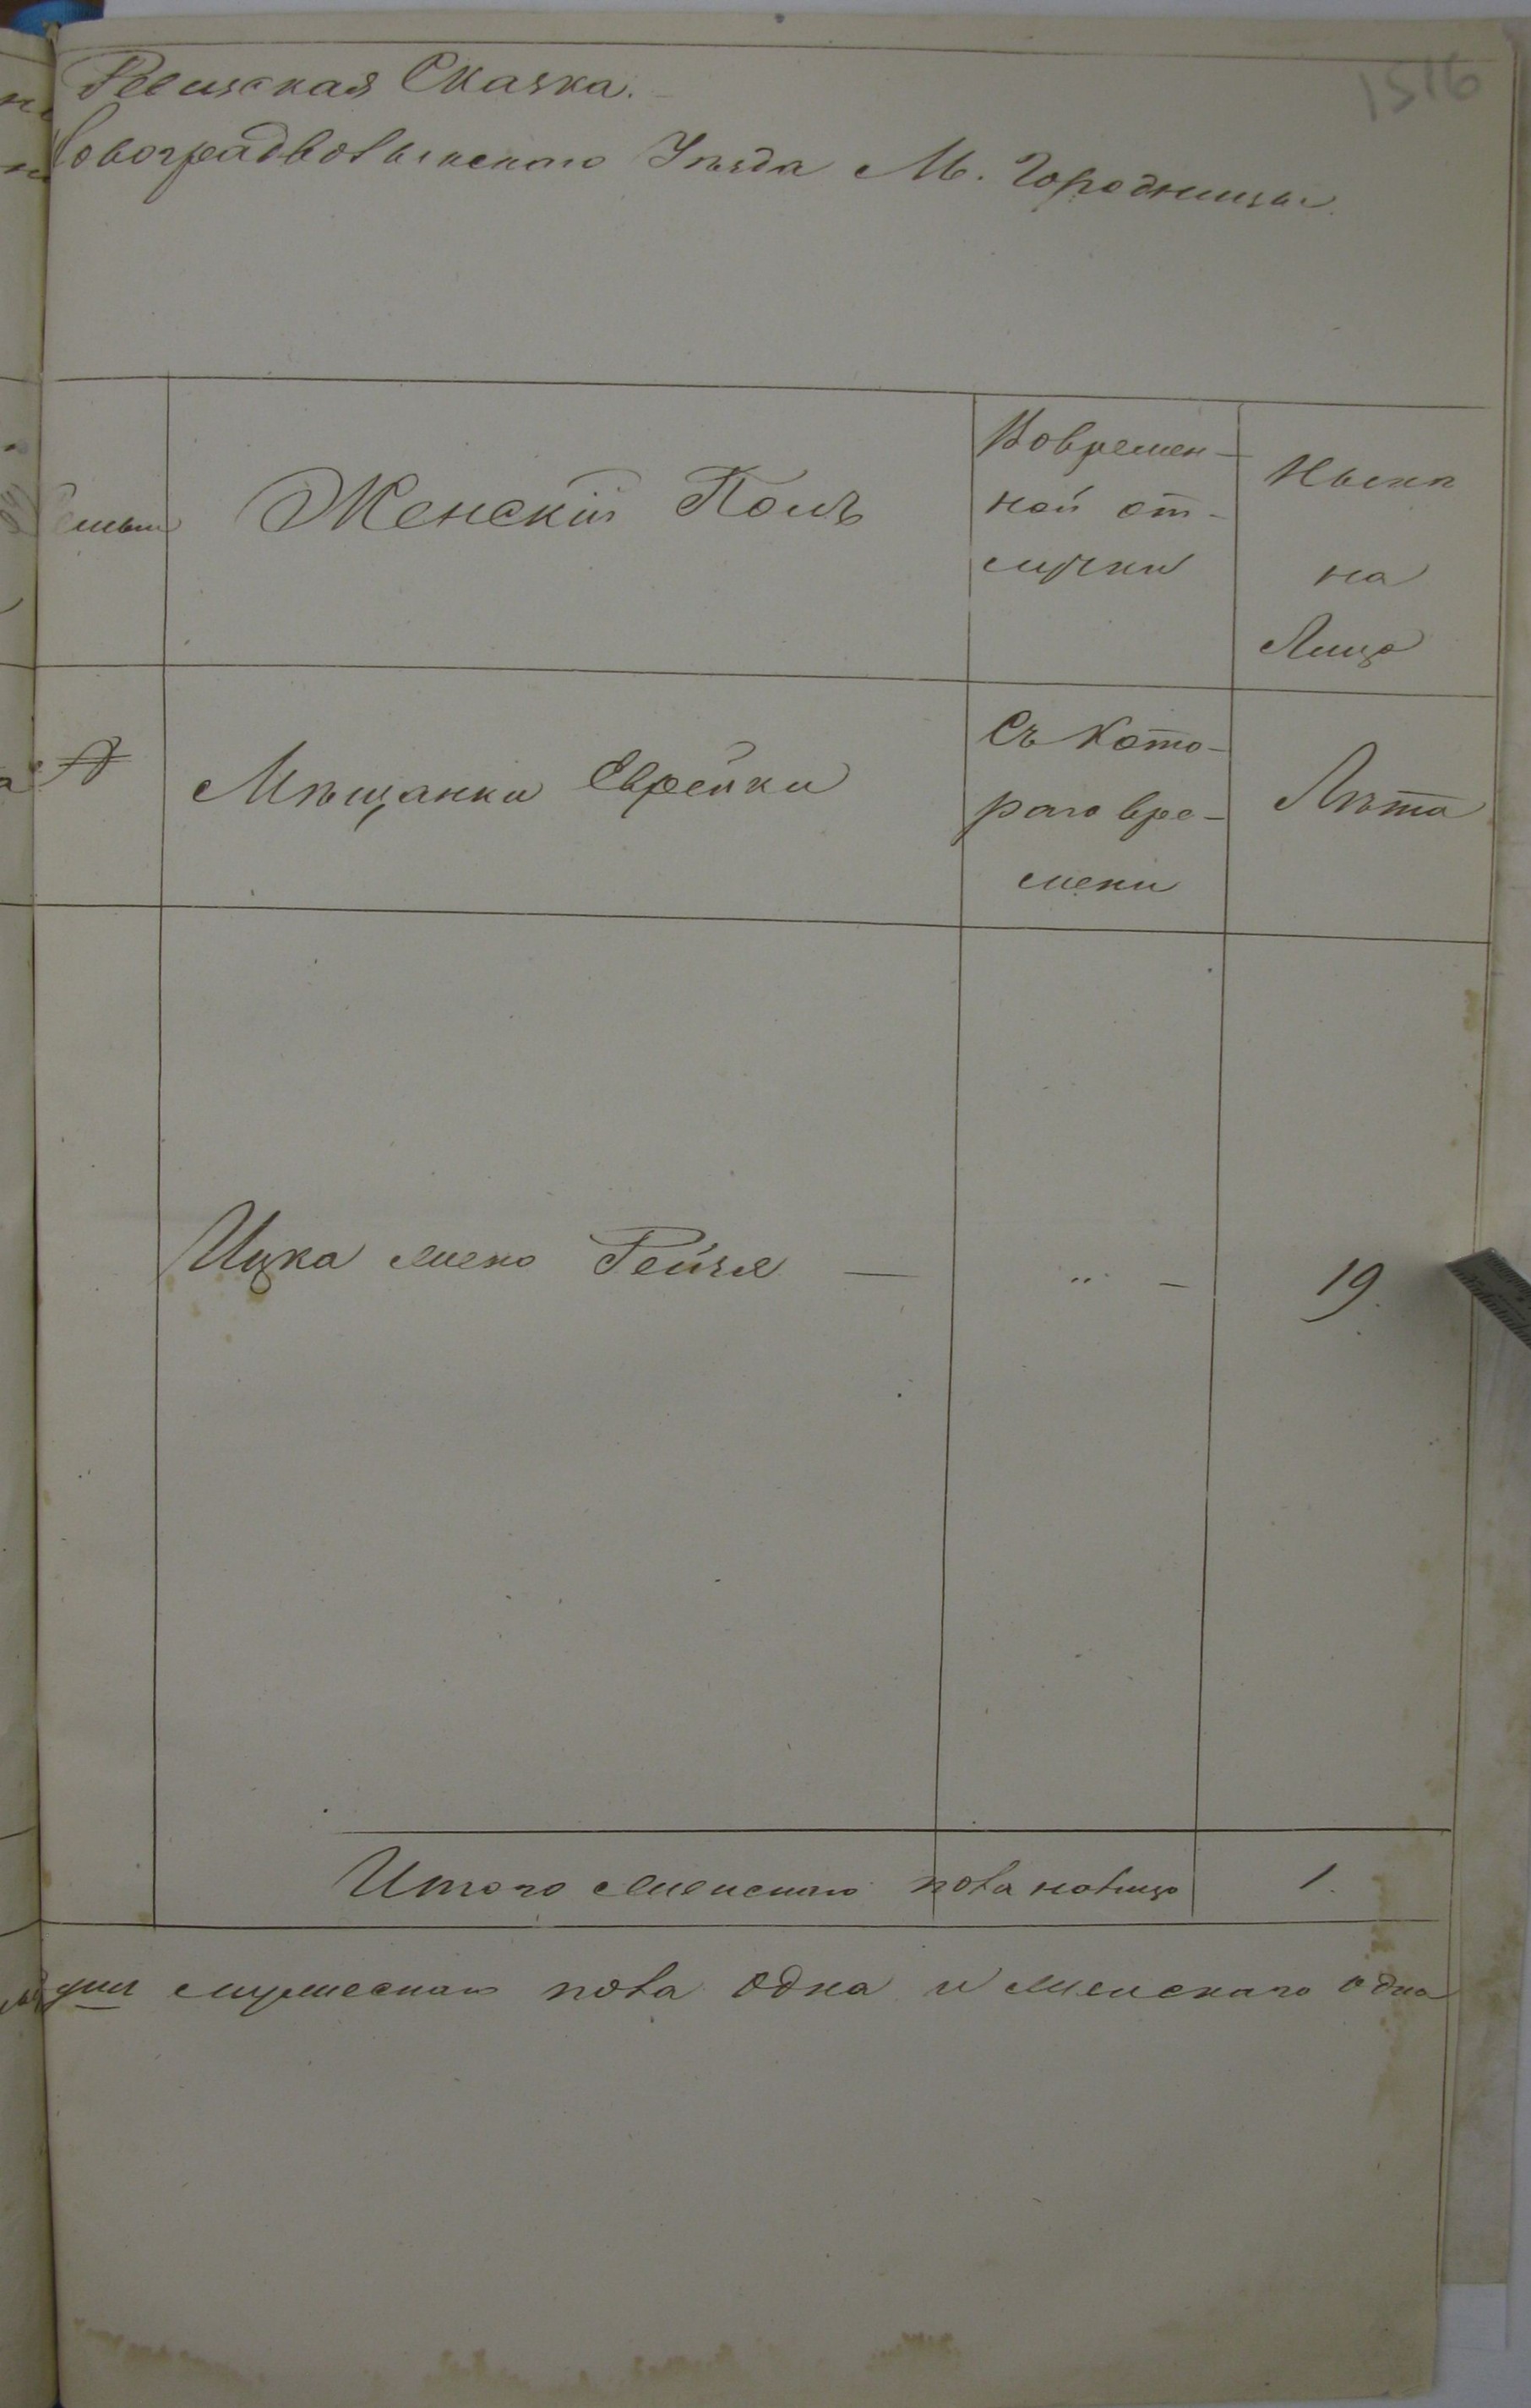 1516
Ревизская Сказка.
Новоградволынскаго Уезда М. Городницы
Семьи
Женскій Полъ
Вовремен-
ной от-
лучки
Ныне
на
Лицо
№
Мѣщанки Еврейки
Съ Кото-
раго вре-
мени
Лѣта
Ицка жена Рейзя — " — 19.
Итого женскаго пола налицо 1.
мужескаго пола одна и женскаго одна